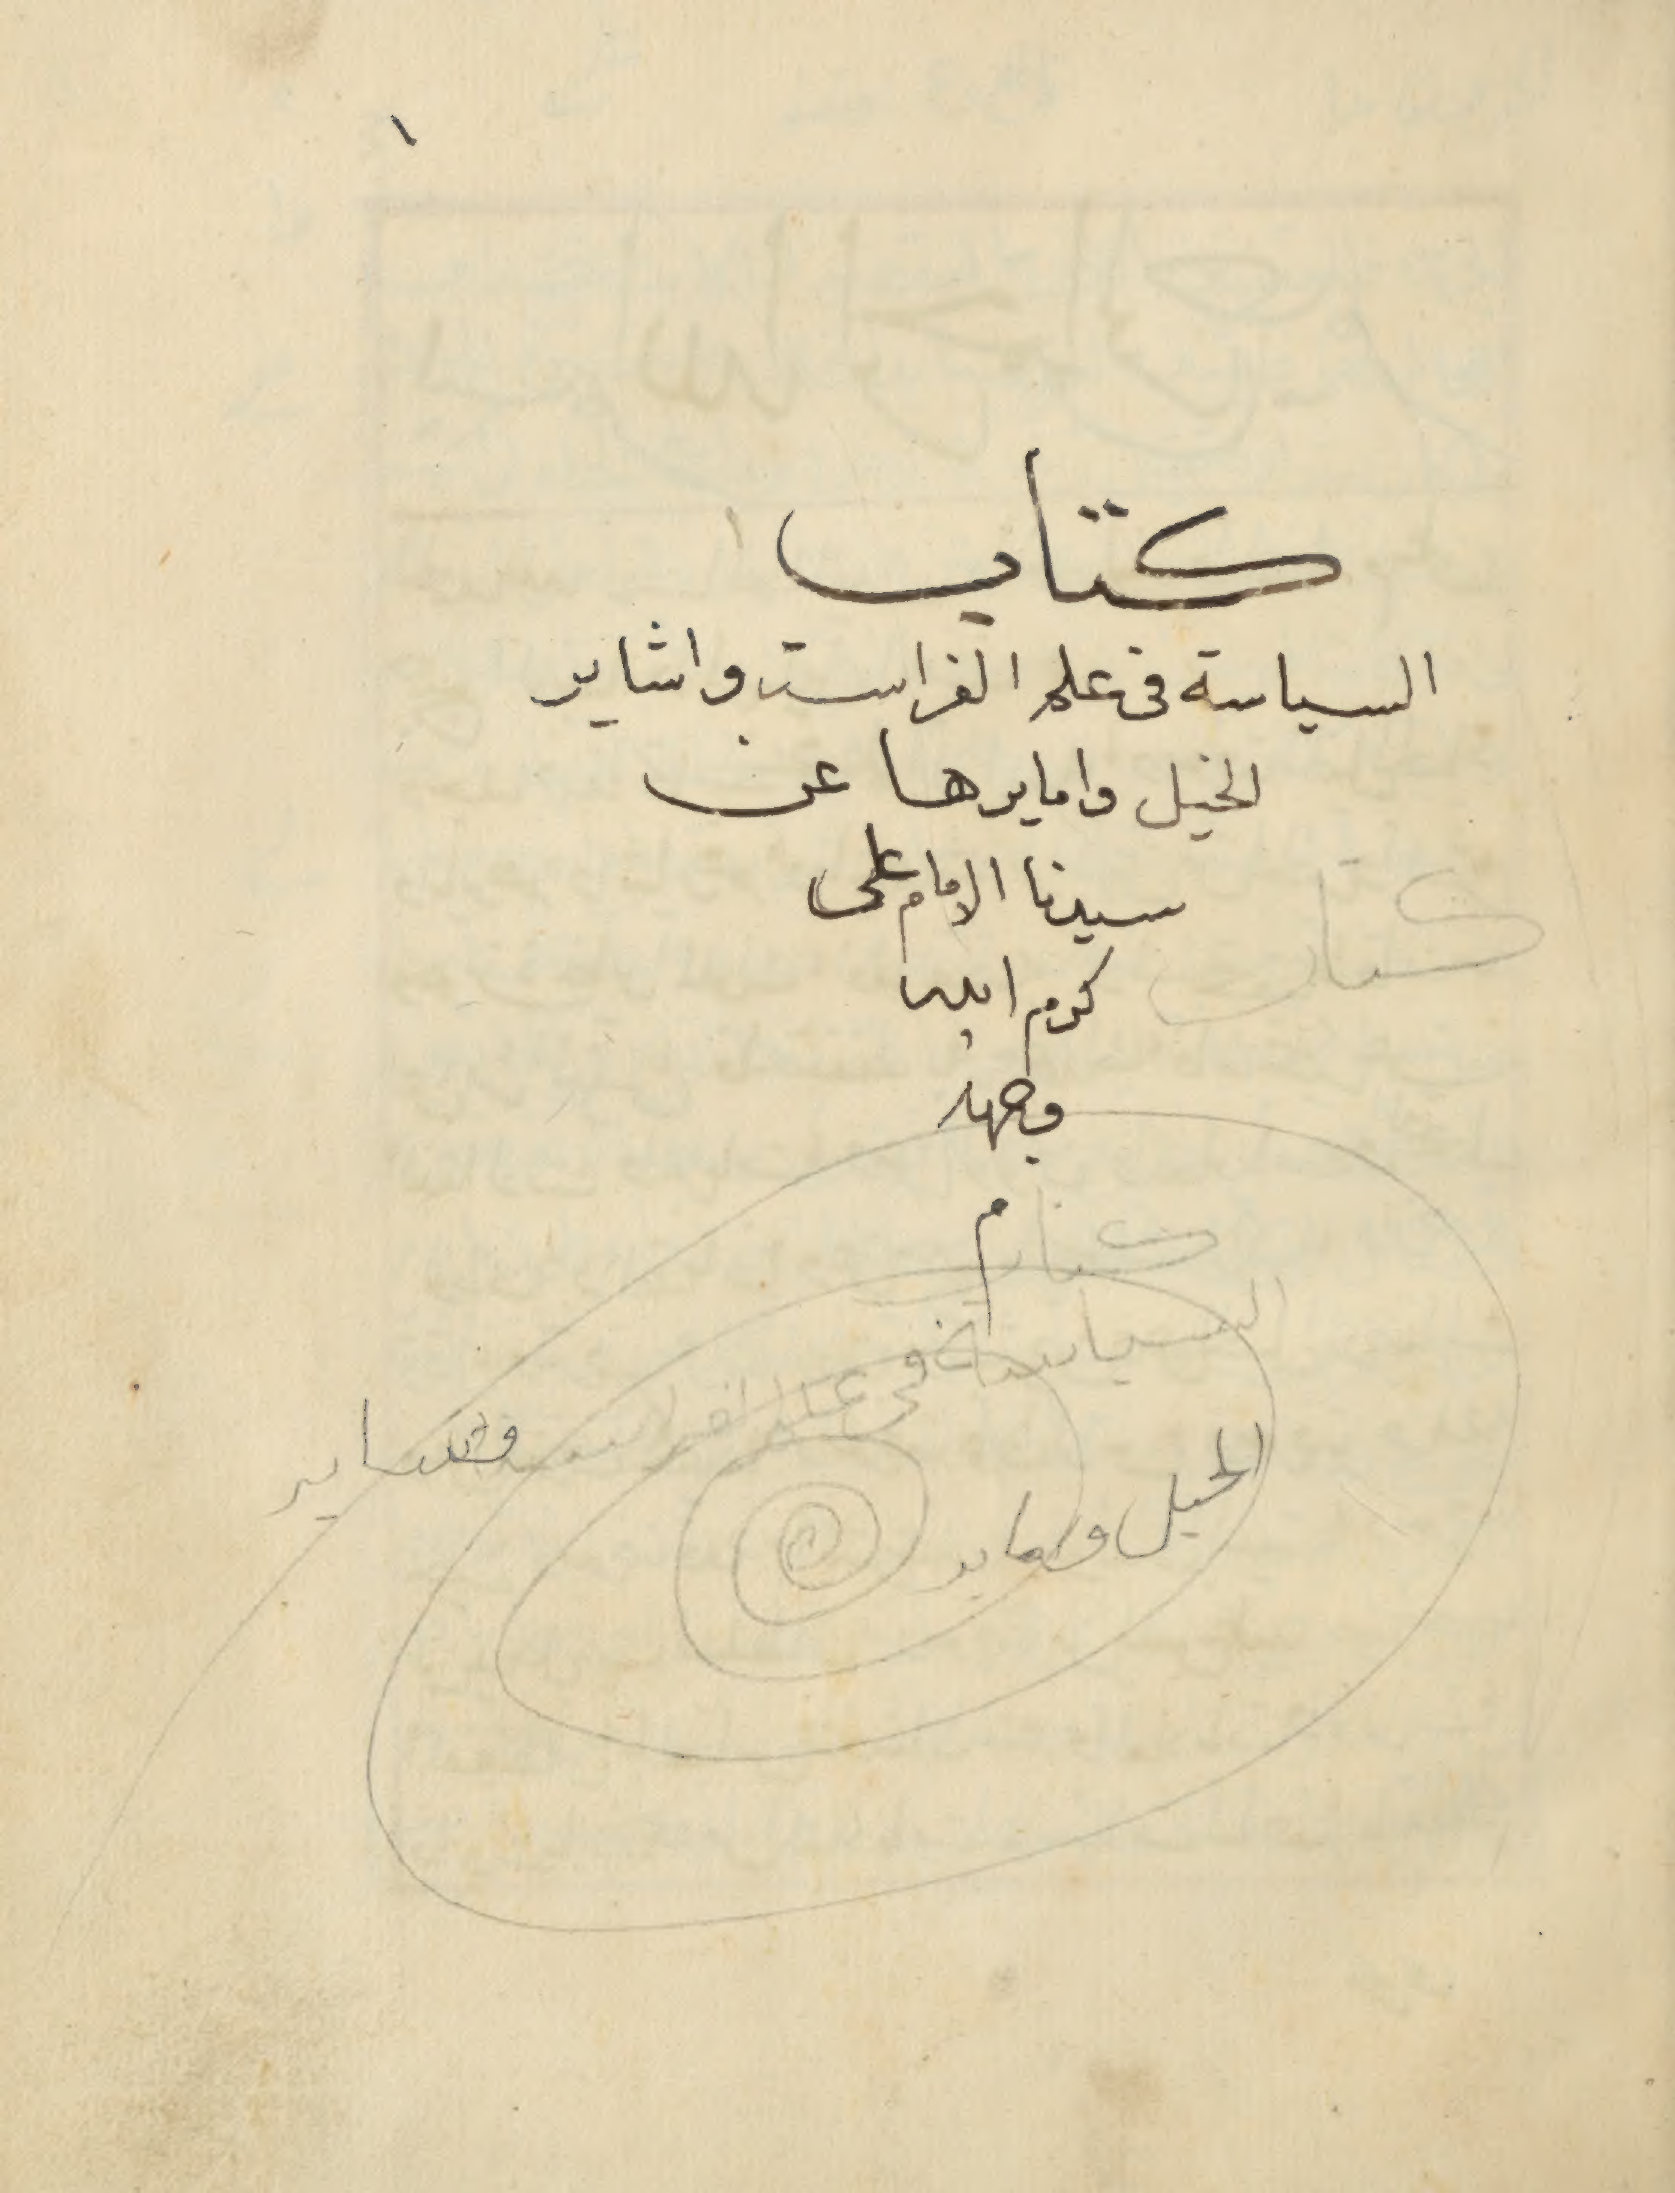 ١
كتاب
السياسة فى علم الفراسة واشاير
الخيل وامايرها عن
سيدنا الامام على
كرم الله
وجهه
م
كتاب
كتاب
السياسة فى علم الفراسة
الخيل